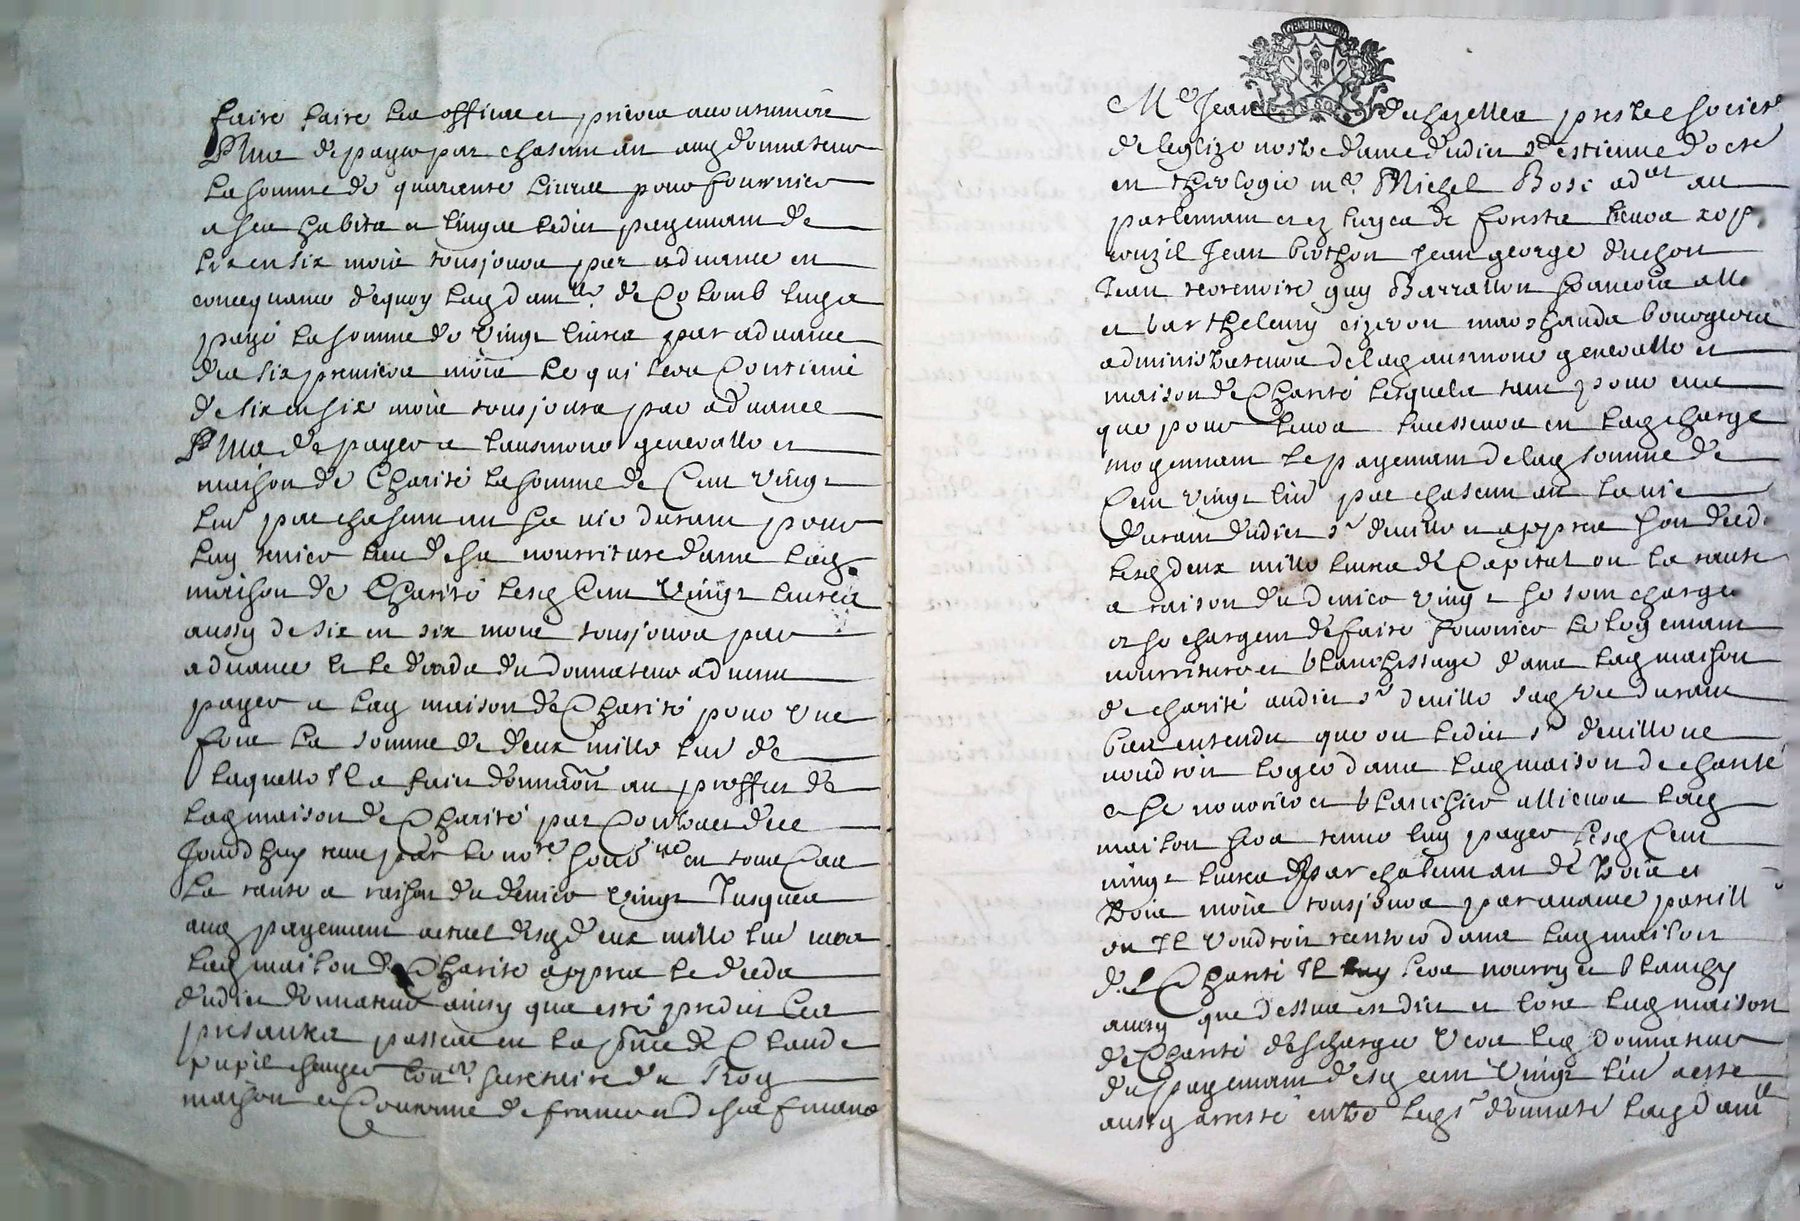 faire faire les offices et prieres accoustumés
Plus de payer par chascun an aud donnateur
la somme de quarante livres pour fournier
a ses habits et linges ledict payemant de
six en six mois tousjours par advance en
consequance dequoy lad dam.lle de Colomb luy a
payé la somme de vingt livres par advance
des six premiers mois ce qui sera continué
de six en six mois tousjours par advance
Plus de payer a l'ausmone generalle et
maison de Charité la somme de Cent vingt
liv par chascun an sa vie durant pour
luy tenir lieu de sa nourriture dans lad
maison de Charité lesd Cent vingt livres
aussy de six en six mois tousjours par
advance et le deceds du donnateur advenu
payer a lad maison de Charité pour une
fois la somme de deux mille liv de
laquelle Il a faict donnaon au proffit de
lad maison de Charité par Contract de ce
Jourdhuy receu par le nore soubné en tous Cas
la rante a raison du denier vingt Jusques
au payement actuel desd deux mille liv vers
lad maison de Charité appres le deceds
dudict donnateur ainsy que esté predict Ces
presantes passées en la pnce de Claude
pupil conr secretaire du Roy
maison et Couronne de france et de ses finances
GEN DE LYON
Me Jean duchezelles prestre societ
de leglize nostre dame dudict St estienne doctr
en theologie me Michel Bosc adat au
parlemant et ez siuges de forests sieurs
Jean berthon Jean george duchon
Jean guy Barrallon francois alle
et barthelemy cizeron marchands bourgeois
administrateurs de lad ausmone generalle et
maison de Charité lesquels tant pour eux
que pour leurs successeurs en lad charge
moyennant le payemant de lad somme de
Cent vingt liv par chascun an la vie
durant dudict sr deville et appres son deced
lesd deux mille livres de Capital ou la rante
a raison du denier vingt se sont charges
et se chargent de faire fournier le logemant
nourriture et blanchissage dans lad maison
de charité audict sr deville sad vie durant
bien entendu que ou ledict sr deville ne
voudroit loger dans lad maison de charité
et se nourrir et blanchir allieurs lad
maison sera tenue luy payer lesd Cent
vingt livres par chascun an de trois et
trois mois tousjours par avance pareill
ou Il voudroit rentrer dans lad maison
de Charité Il sera nourry et blanchy
ainsy que dessus est dict et lors lad maison
de Charité deschargée sera led donnateur
du payemant desd cent vingt liv a esté
aussy arresté entre led sr donnate lad damlle